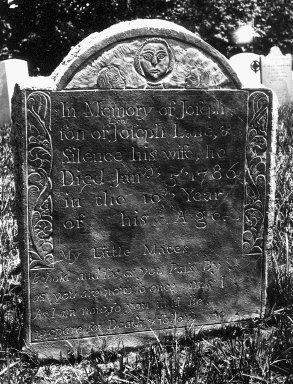 In Memory of Joseph
son of Joseph Lane, &
Silence his wife, he
Died Jan
1786
in the 10 Year
of his Age.
My Little Mates
as you Pass By
as you are now so once was I
As I am now so you must be
Prepare for Death